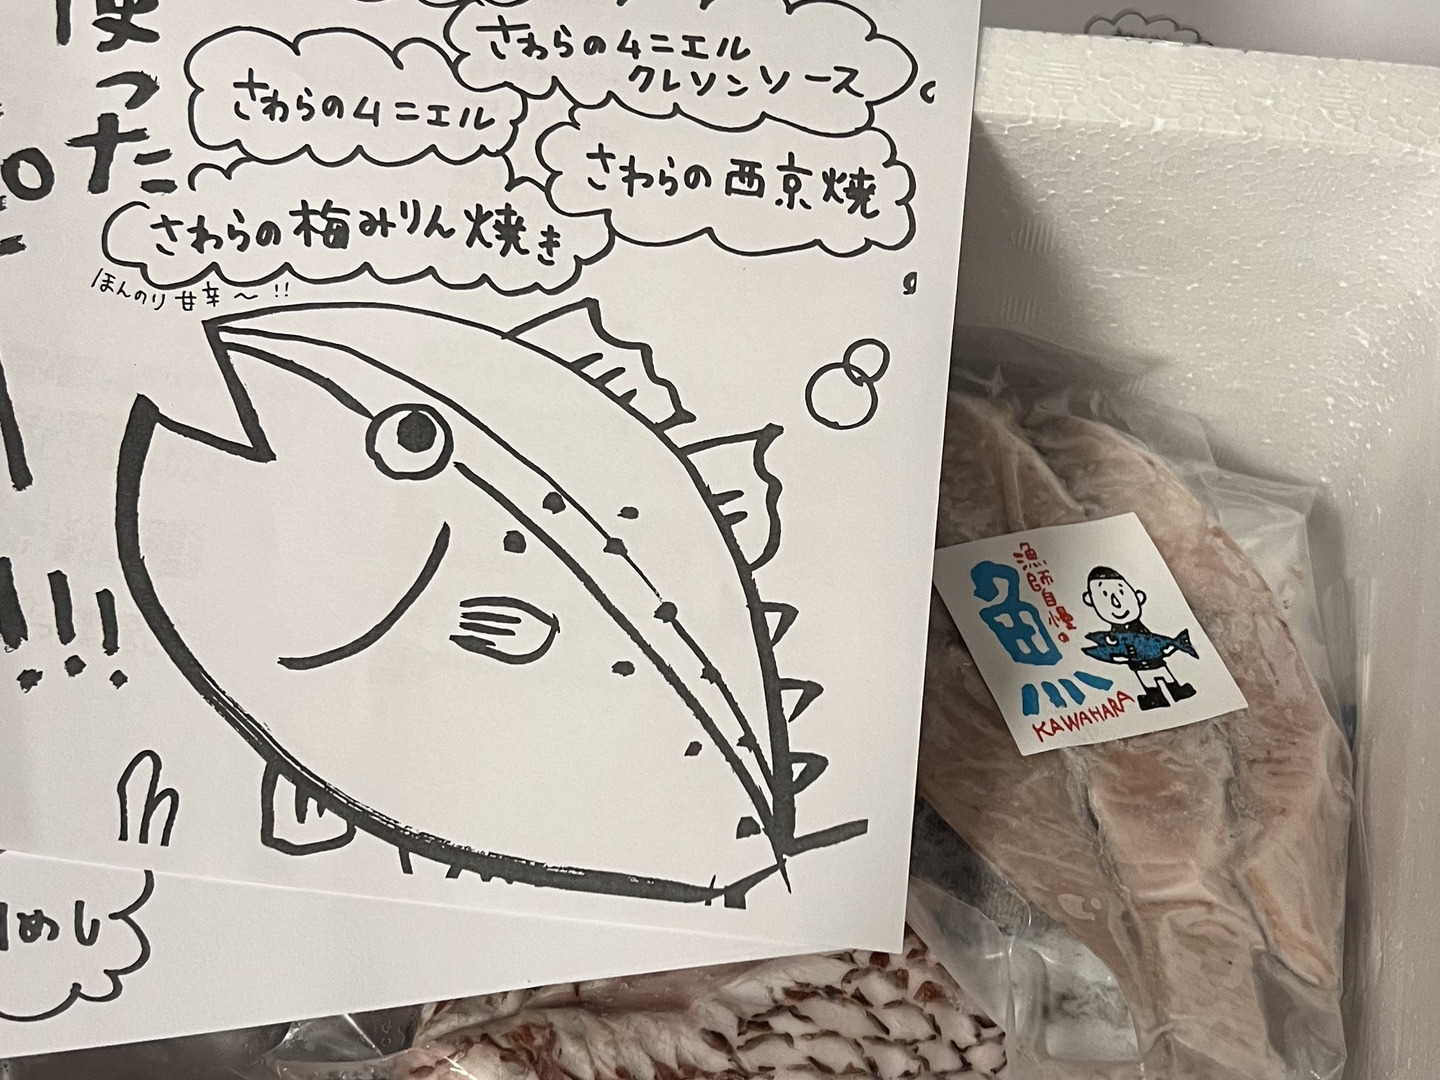 使った
さわらのムニエル
クレソンソース
さわらのムニエル
さわらの西京焼
さわらの梅みりん焼き
ほんのり甘辛〜!!
!!!
めし
漁師自慢の
魚
KAWAHARA